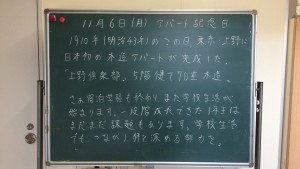 11月6日(月) アパート記念日
1910年(明治43年)のこの日、東京・上野に
日本初の木造アパートが完成した。
「上野倶楽部」5階建て70室木造。
さぁ宿泊学習も終わり、また学校生活が
始まります。一段階成長できた1年3は
まだまだ課題もあります。学校生活
でも、つながり、絆を深める